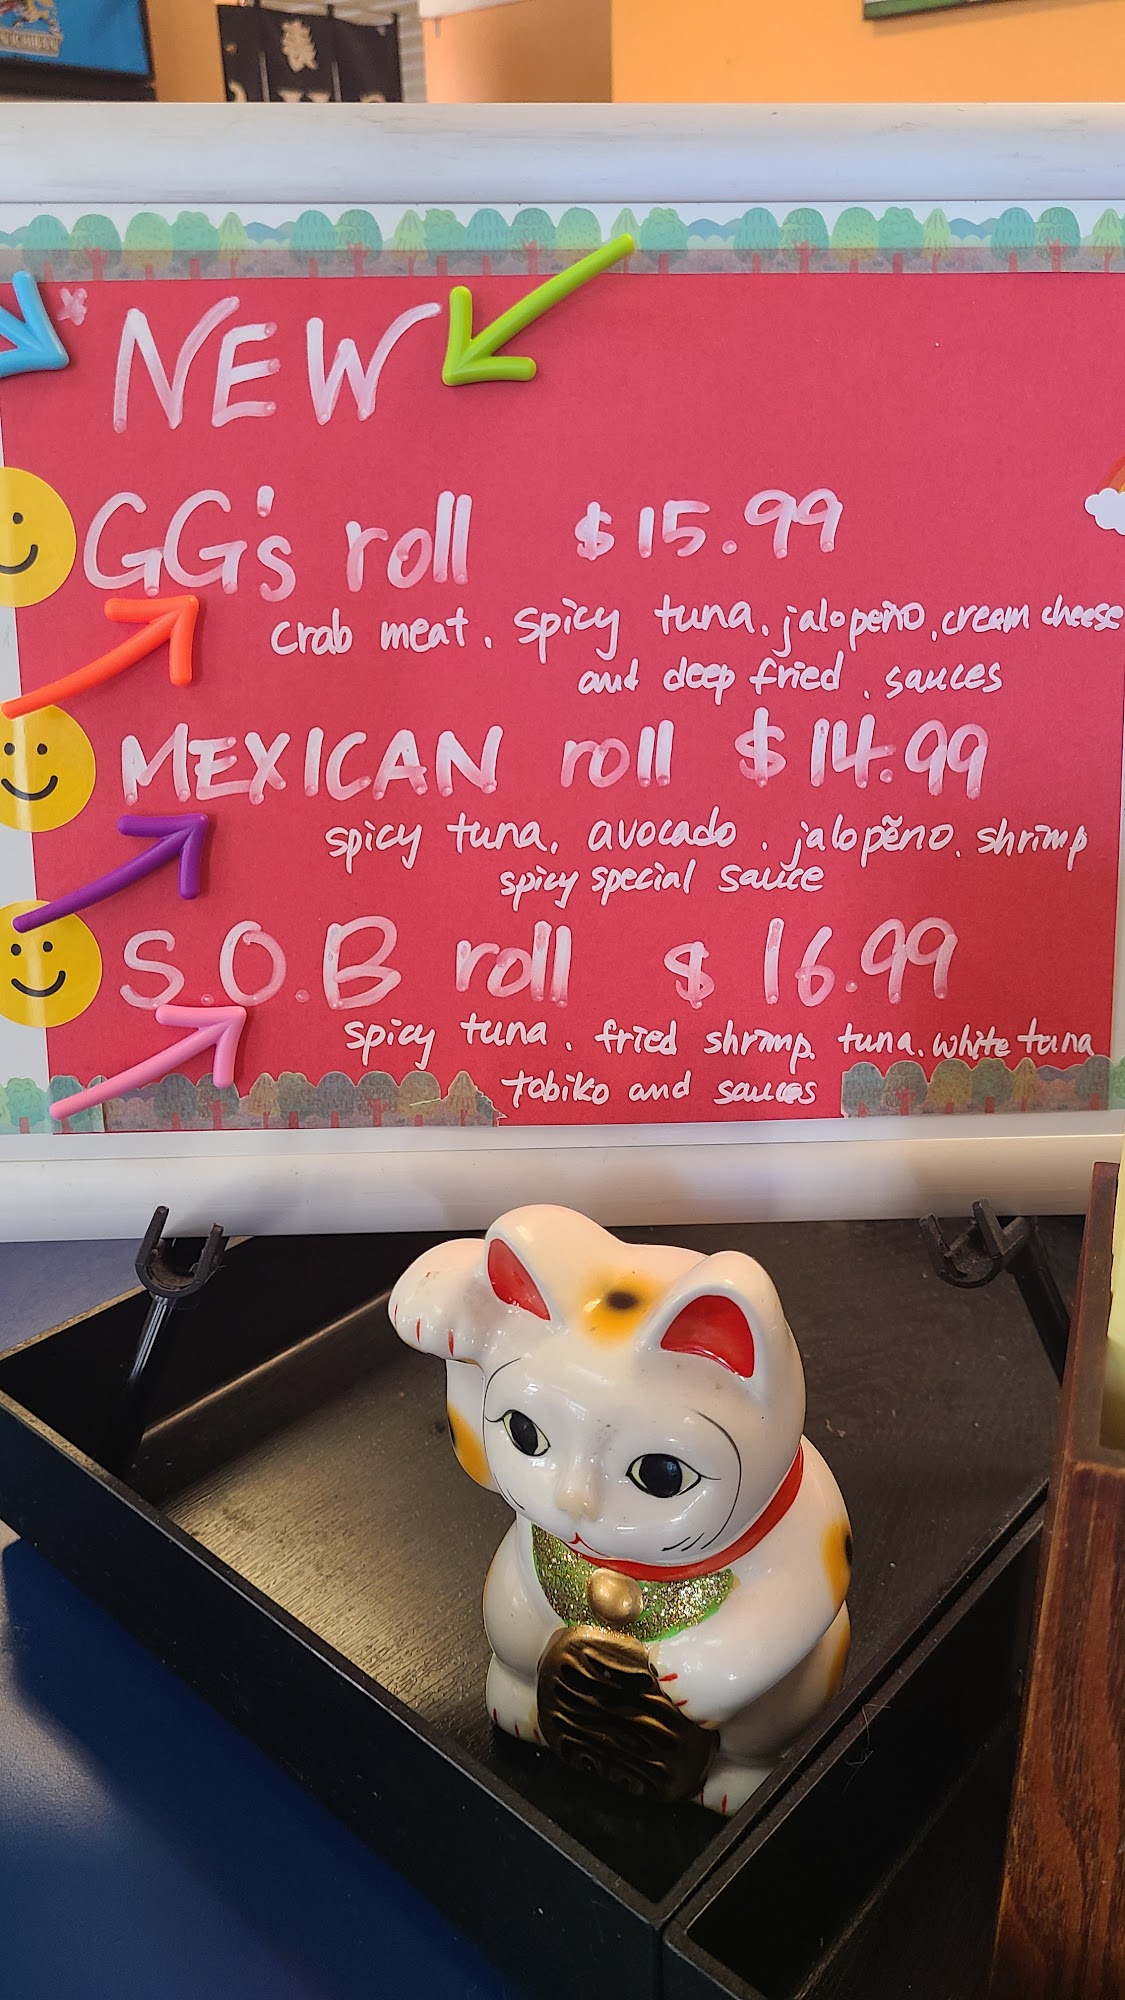 NEW
GG's roll $15.99
crab meat. spicy tuna. jalopeño. cream cheese
and deep fried. sauces
MEXICAN roll $14.99
spicy tuna. avocado. jalopẽno. shrimp
spicy special sauce
S.O.B roll $16.99
spicy tuna. fried shrimp. tuna. white tuna
tobiko and sauces